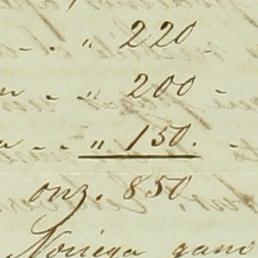 - - „ 220 -
- - „ 200 -
- - „ 150. -
onz. 850
Noriega gano